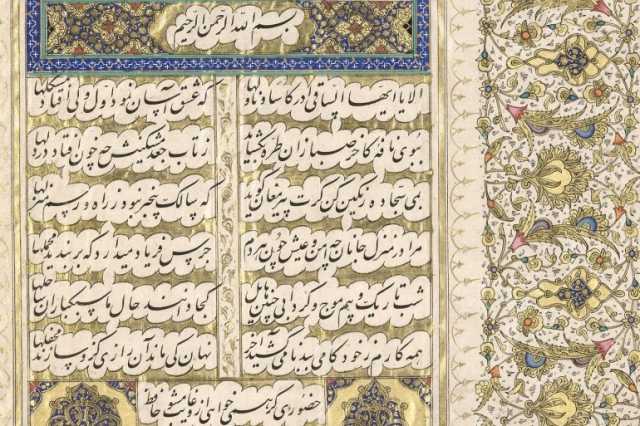 بسم الله الرحمن الرحیم
الا یا ایها الساقی ادر کاسا و ناولها که عشق آسان نمود اول ولی افتاد مشکلها
ببوی نافه کاخر صبا زان طره بکشاید ز تاب جعد مشکینش چه خون افتاد در دلها
بمی سجاده رنگین کن کرت پیر مغان کوید که سالک بیخبر نبود ز راه و رسم منزلها
مرا در منزل جانان چه امن و عیش چون هر دم جرس فریاد میدارد که بربندید محملها
شب تاریک و بیم موج و کردابی چنین هایل کجا دانند حال ما سبکباران ساحلها
همه کارم ز خود کامی ببدنامی کشید آخر نهان کی ماند آن رازی کزو سازند محفلها
حضوری کر همی خواهی ازو غایب مشو حافظ